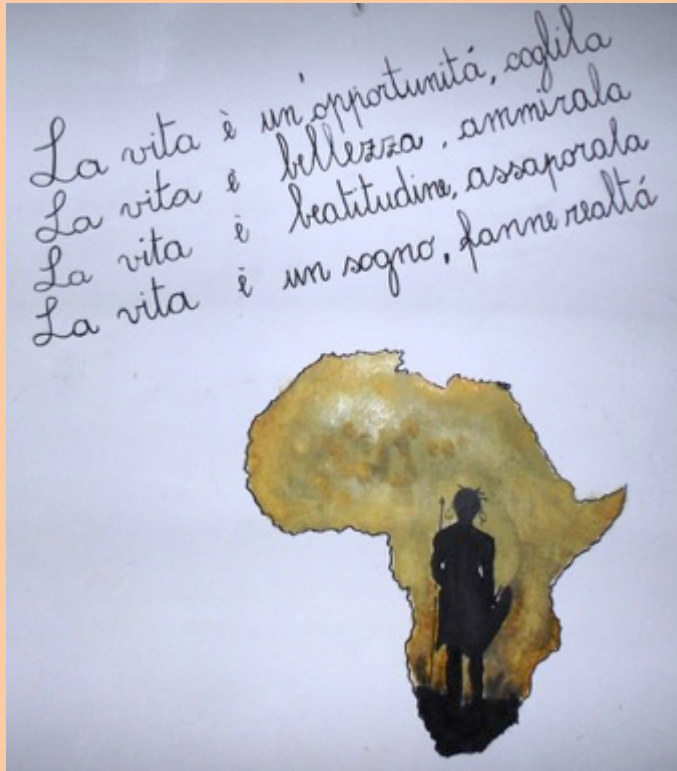 La vita è un'opportunitá, coglila
La vita è bellezza, ammirala
La vita è beatitudine, assaporala
La vita è un sogno, fanne realtá